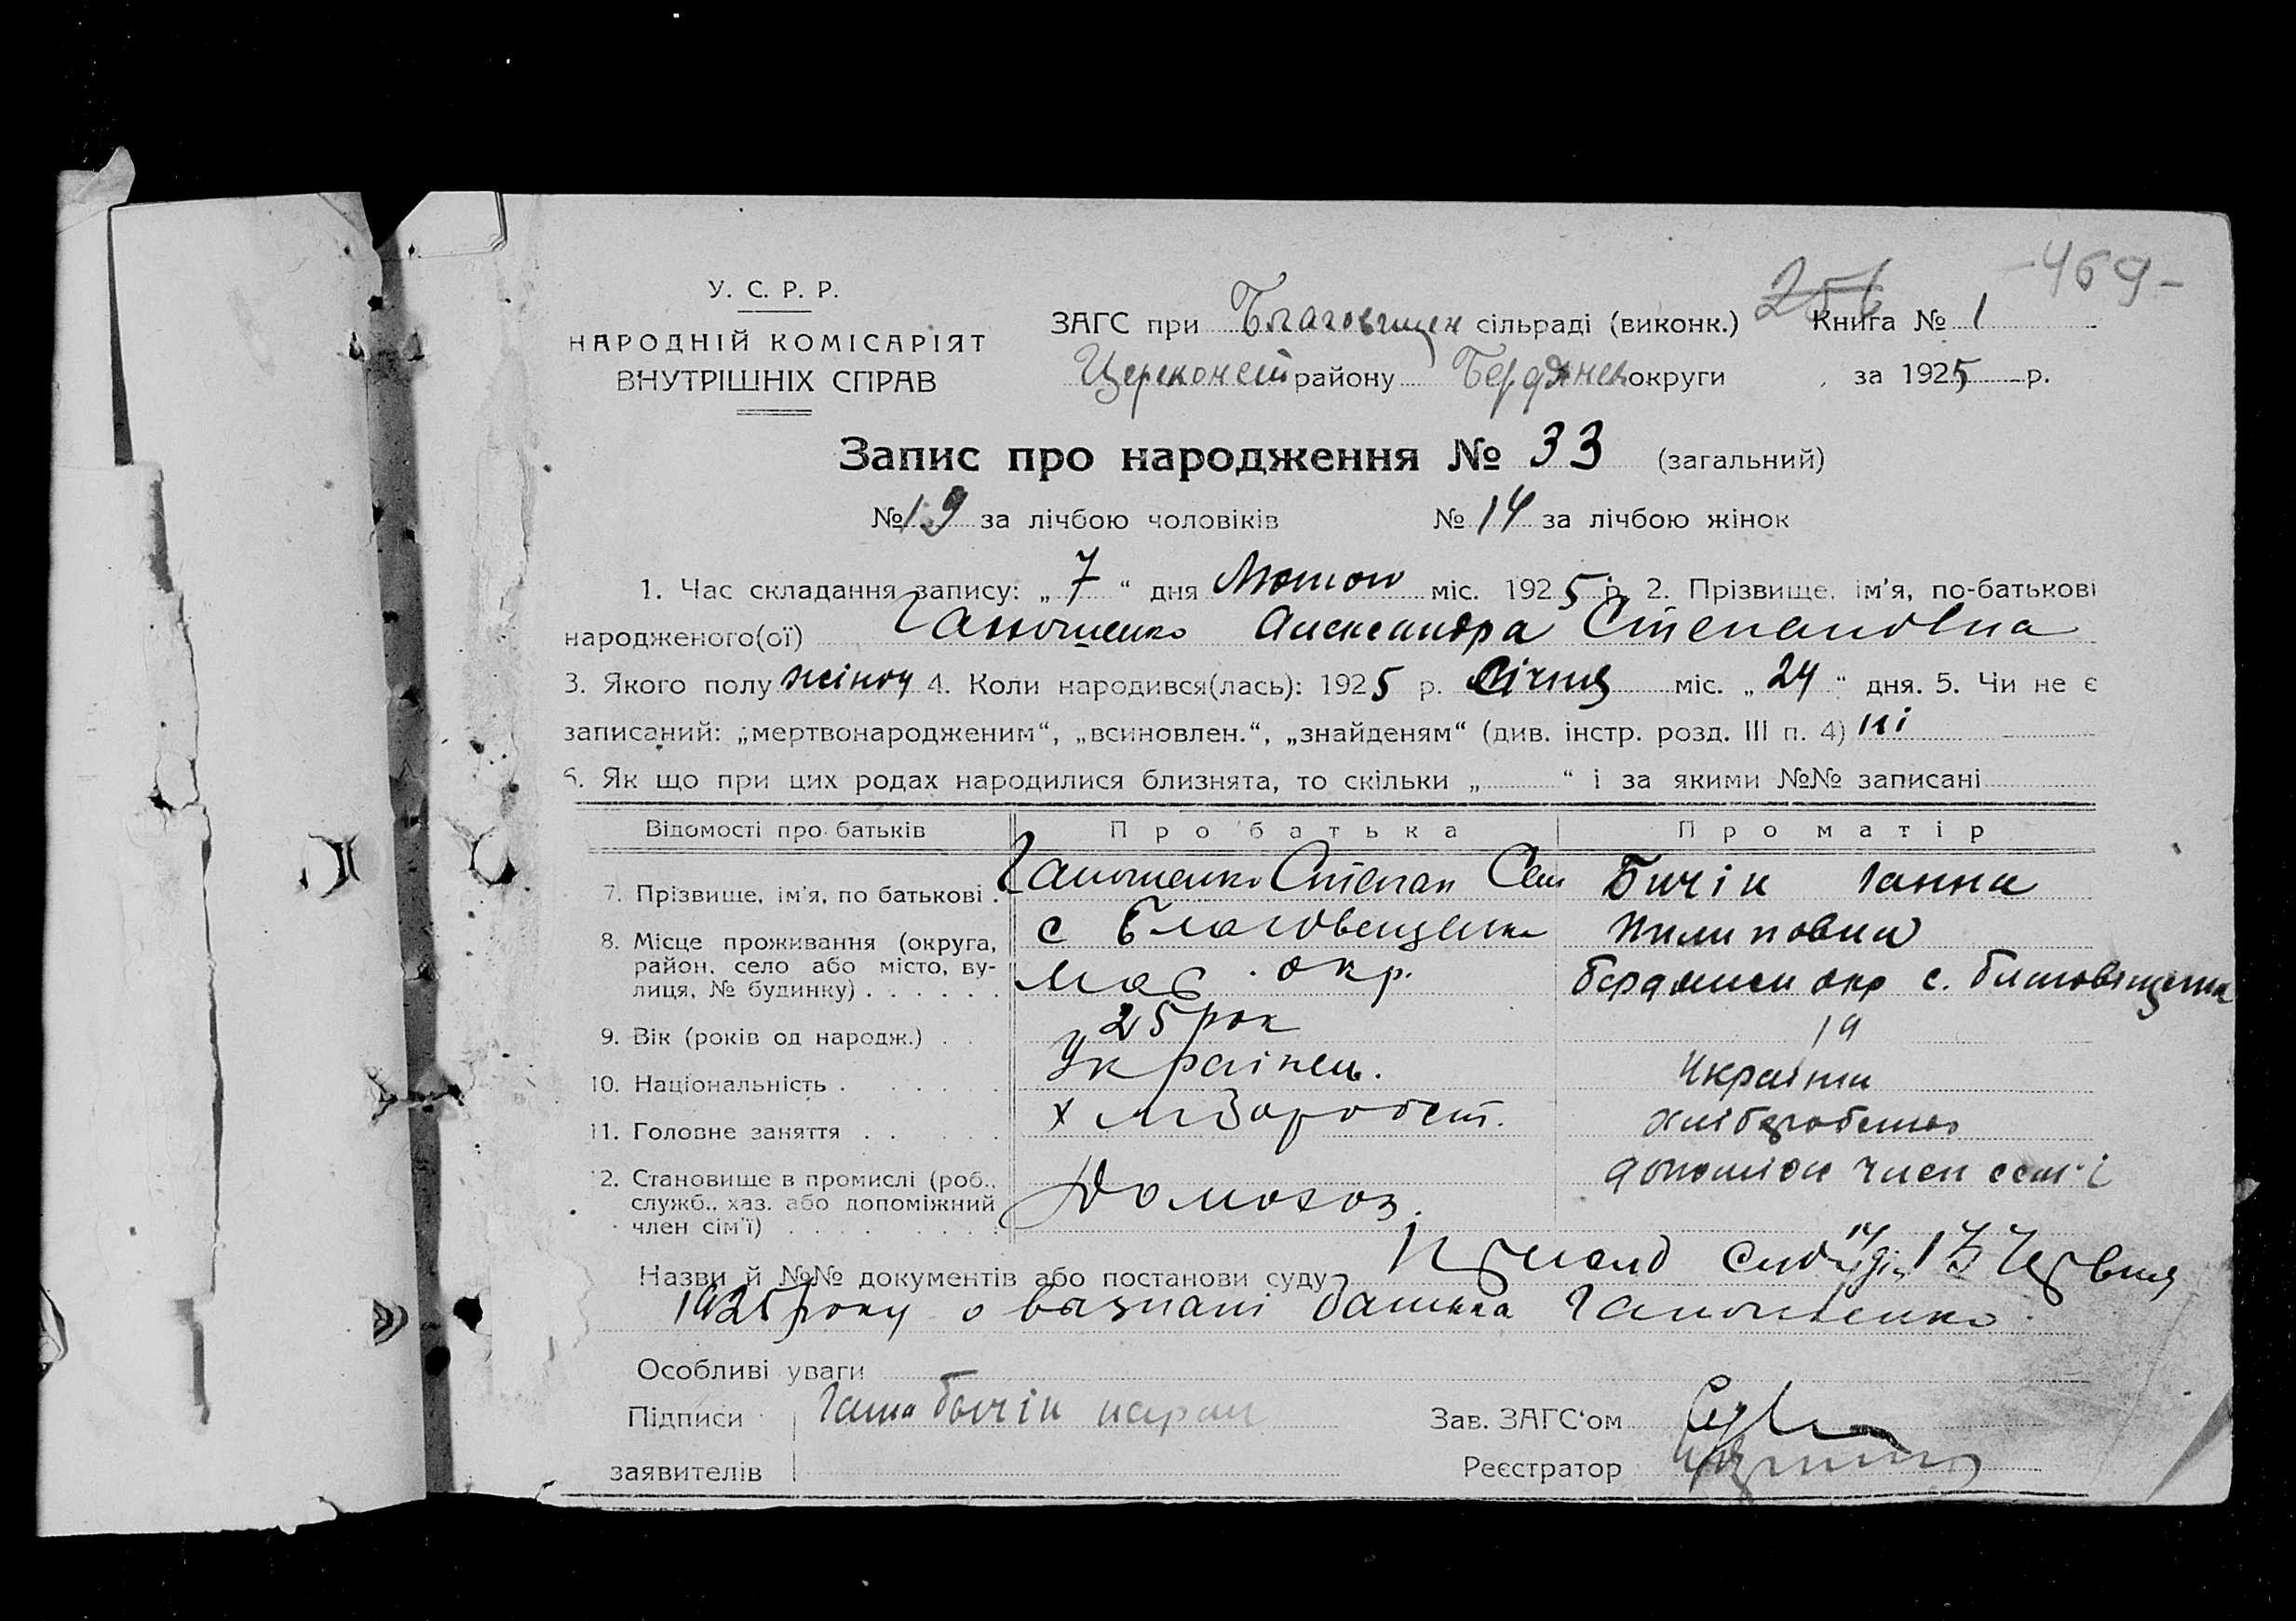 256 -469-
У. С. Р. Р.
НАРОДНІЙ КОМІСАРІЯТ
ВНУТРІШНІХ СПРАВ
ЗАГС при Благовіщен сільраді (виконк.) Книга № 1
району Бердянськ округи за 1925 р.
Запис про народження № 33 (загальний)
№ 19 за лічбою чоловіків № 14 за лічбою жінок
1. Час складання запису: „ 7 “ дня Лютого міс. 1925 р. 2. Прізвище, ім'я, по-батькові
народженого(ої) Ганошенко Александра Степановна
3. Якого полу жіноч 4. Коли народився(лась): 1925 р. Січня міс. „ 24 “ дня. 5. Чи не є
записаний: „мертвонародженим“, „всиновлен.“, „знайденям“ (див. інстр. розд. III п. 4) ні
6. Як що при цих родах народилися близнята, то скільки „ “ і за якими №№ записані
Відомості про батьків Про батька Про матір
7. Прізвище, ім'я, по батькові . Ганошенко Степан Сем Бичін Ганна
Пилиповна
8. Місце проживання (округа, район, село або місто, вулиця, № будинку) . . . . . . с Благовещенка окр. Бердянськ окр с. Благовіщенка
9. Вік (років од народж.) . . 25 рок 19
10. Національність . . . . . Українець. Українка
11. Головне заняття . . . . . хліборобст. хліборобство
12. Становище в промислі (роб., служб., хаз. або допоміжний член сім'ї) . . . . . . . . Домохоз. допоміжн член сем'ї
Назви й №№ документів або постанови суду 17 Червня
1925 року о визнані батька Ганошенко
Особливі уваги
Підписи Ганна Бичін Зав. ЗАГС'ом
заявителів Реєстратор